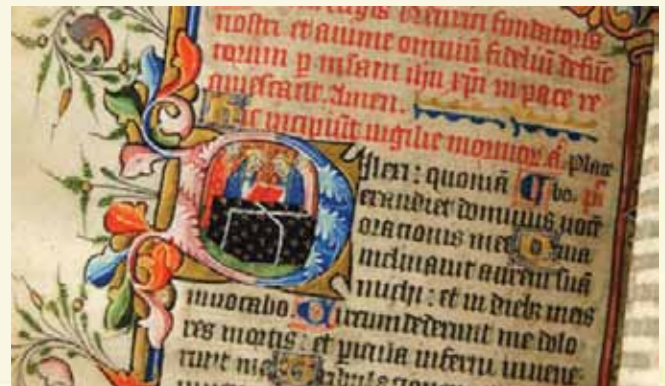 regis henrici fundatoris
nostri et anime omniū fideliū defūc
torum p misam ihu xpi in pace re
quiescant. Amen.
Hic incipiūt vigilie mortuor. a. Place
Dilexi: quoniā bo. ps
exaudiet dominus vocē
orationis mee Quia
inclinauit aurem suā
michi: et in dieb; meis
inuocabo. Circumdederunt me dolo
res mortis: et pericula inferni inuene
runt me Tribulacionem